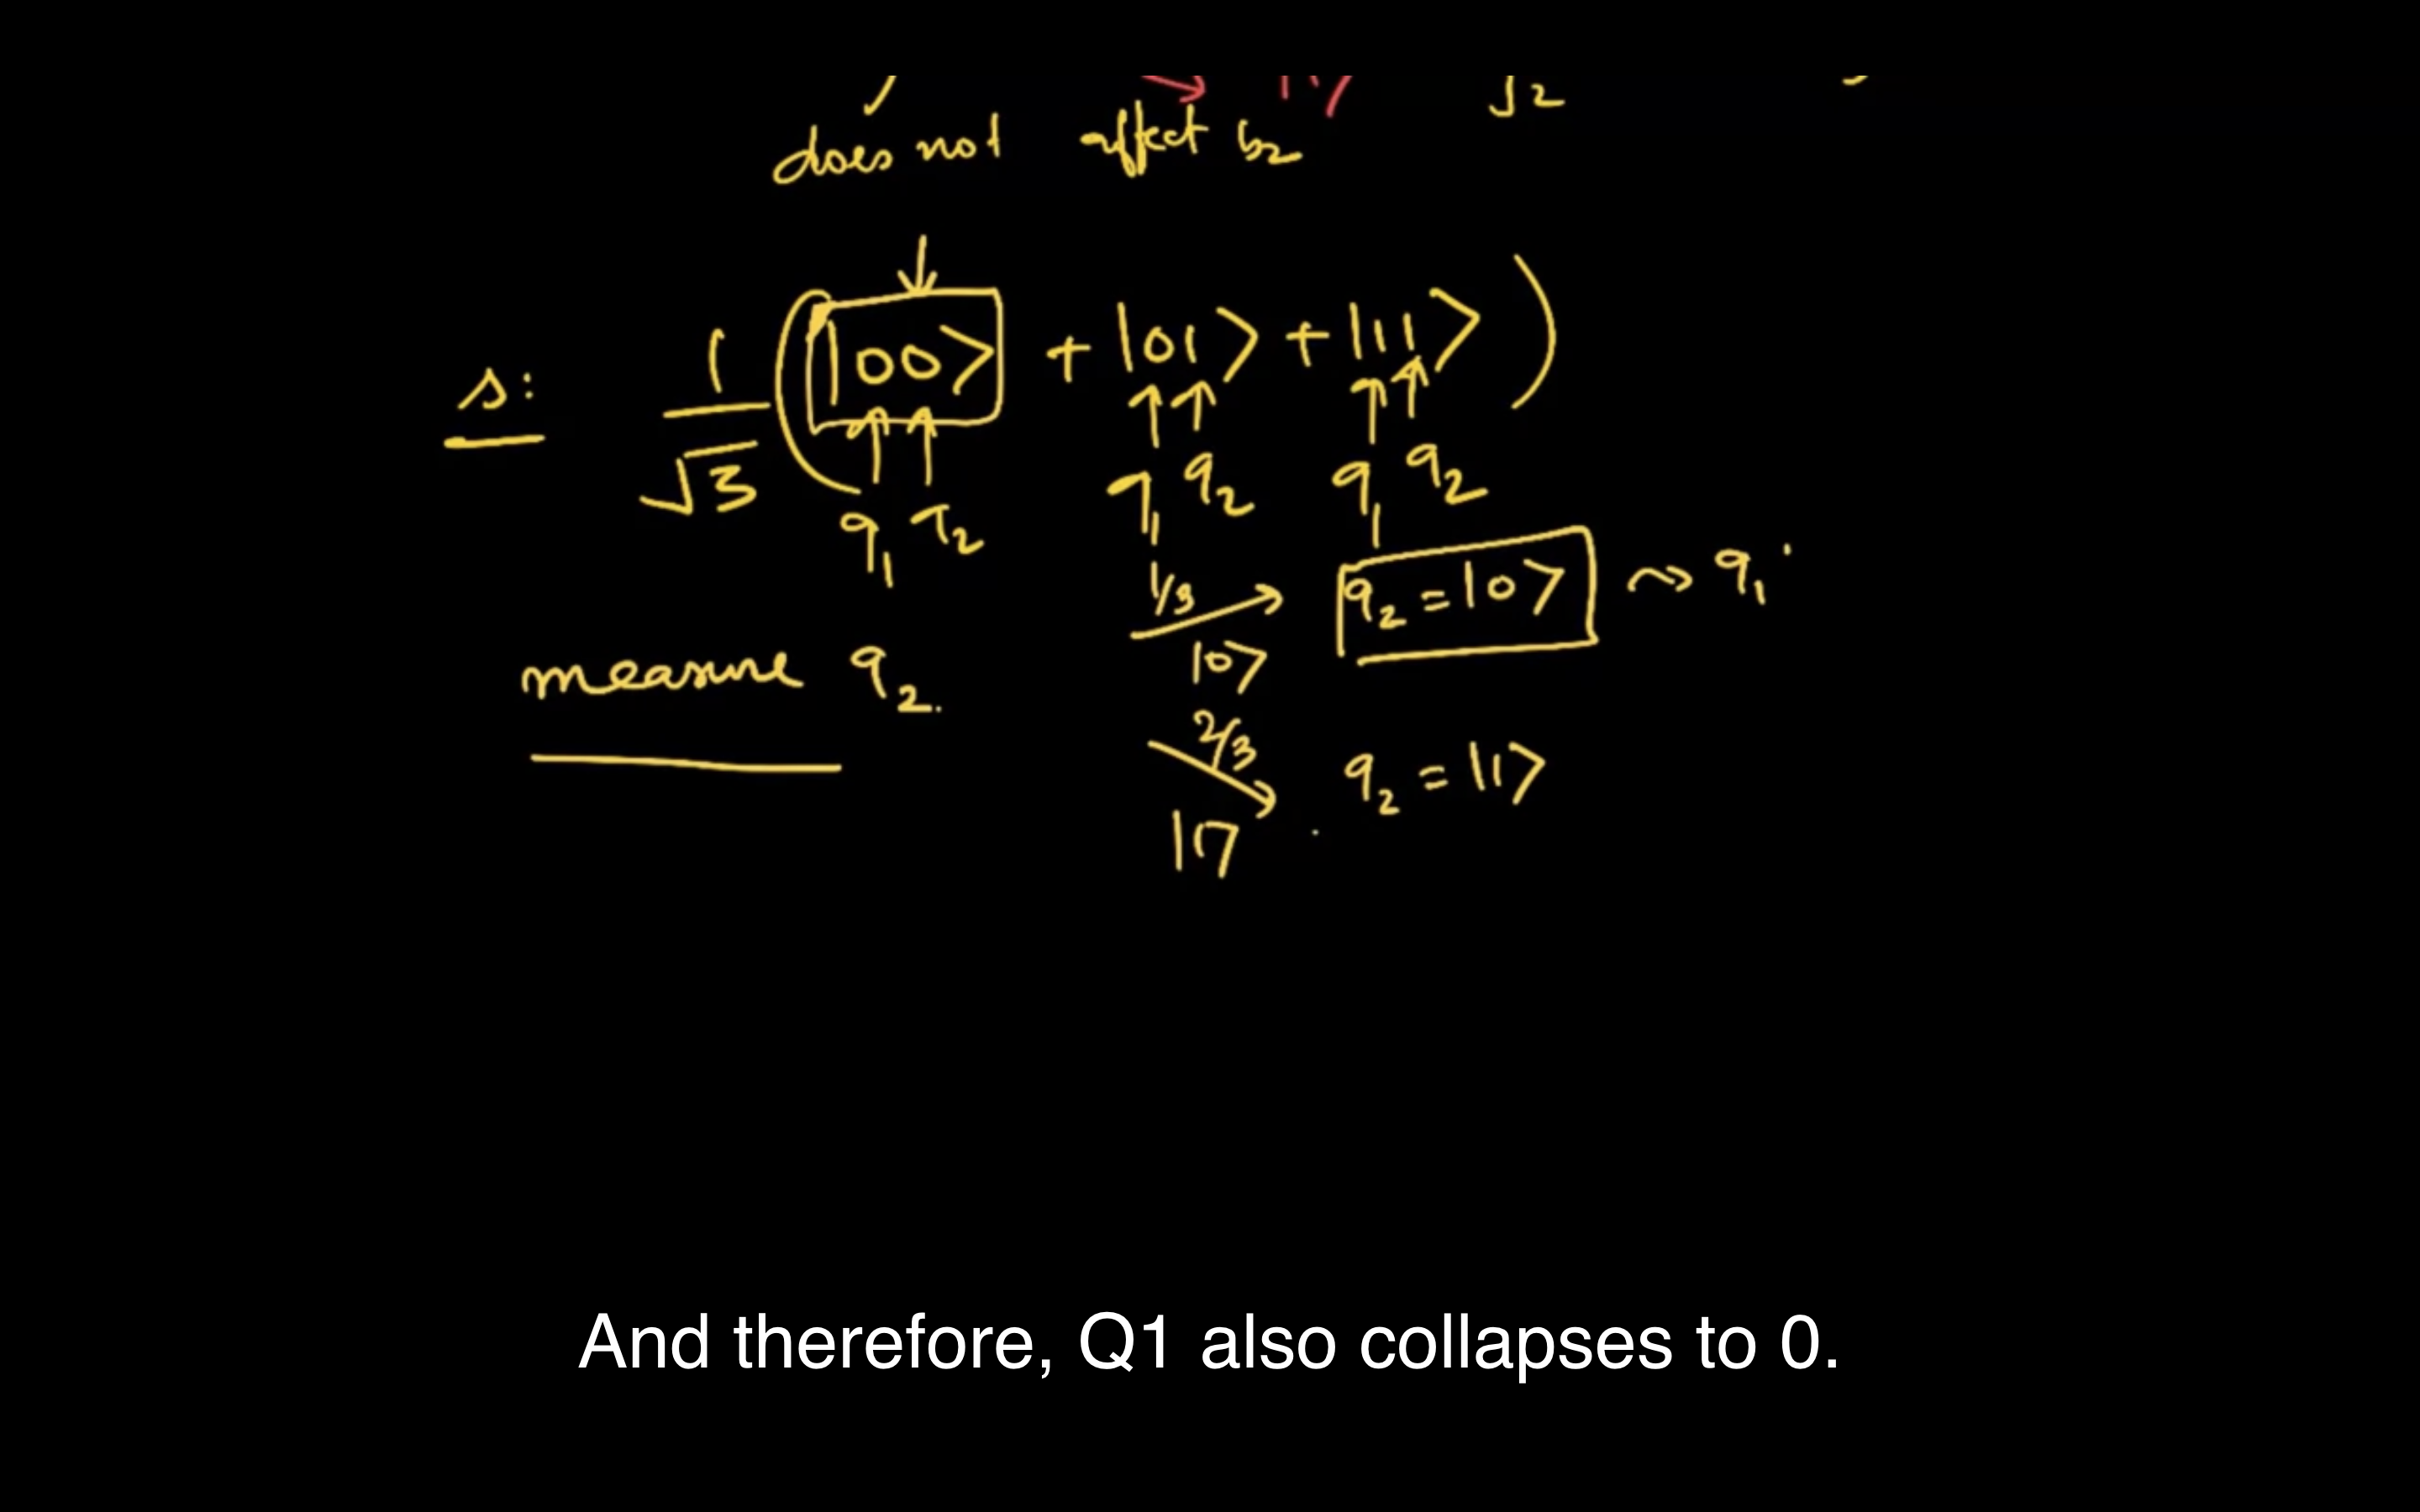 √2
does not affect b2
s: 1/√3 (|00⟩ + |01⟩ + |11⟩)
q1 q2 q1 q2 q1 q2
1/3 |0⟩ q2 = |0⟩ ⇝ q1
measure q2.
2/3 |1⟩ q2 = |1⟩
And therefore, Q1 also collapses to 0.